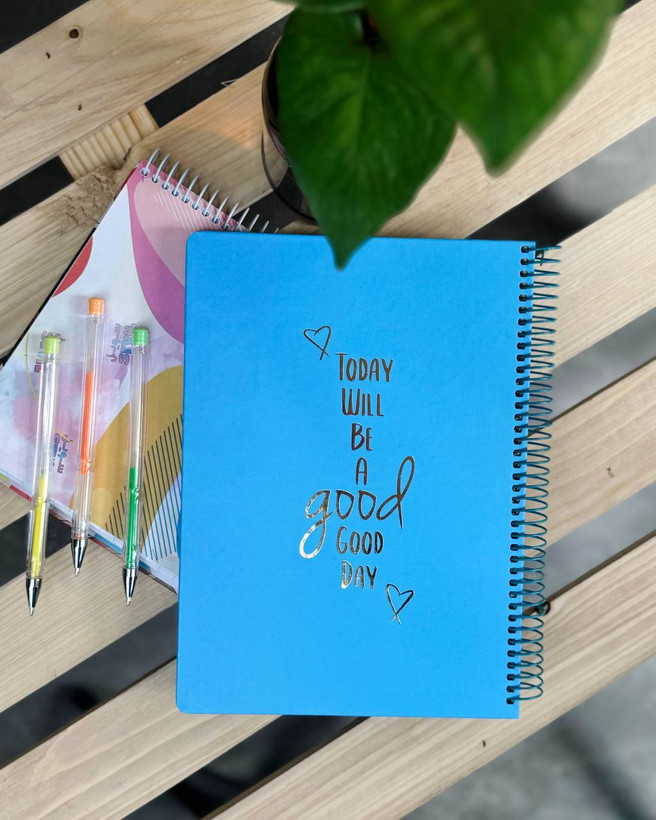 TODAY
WILL
BE
A
good
GOOD
DAY